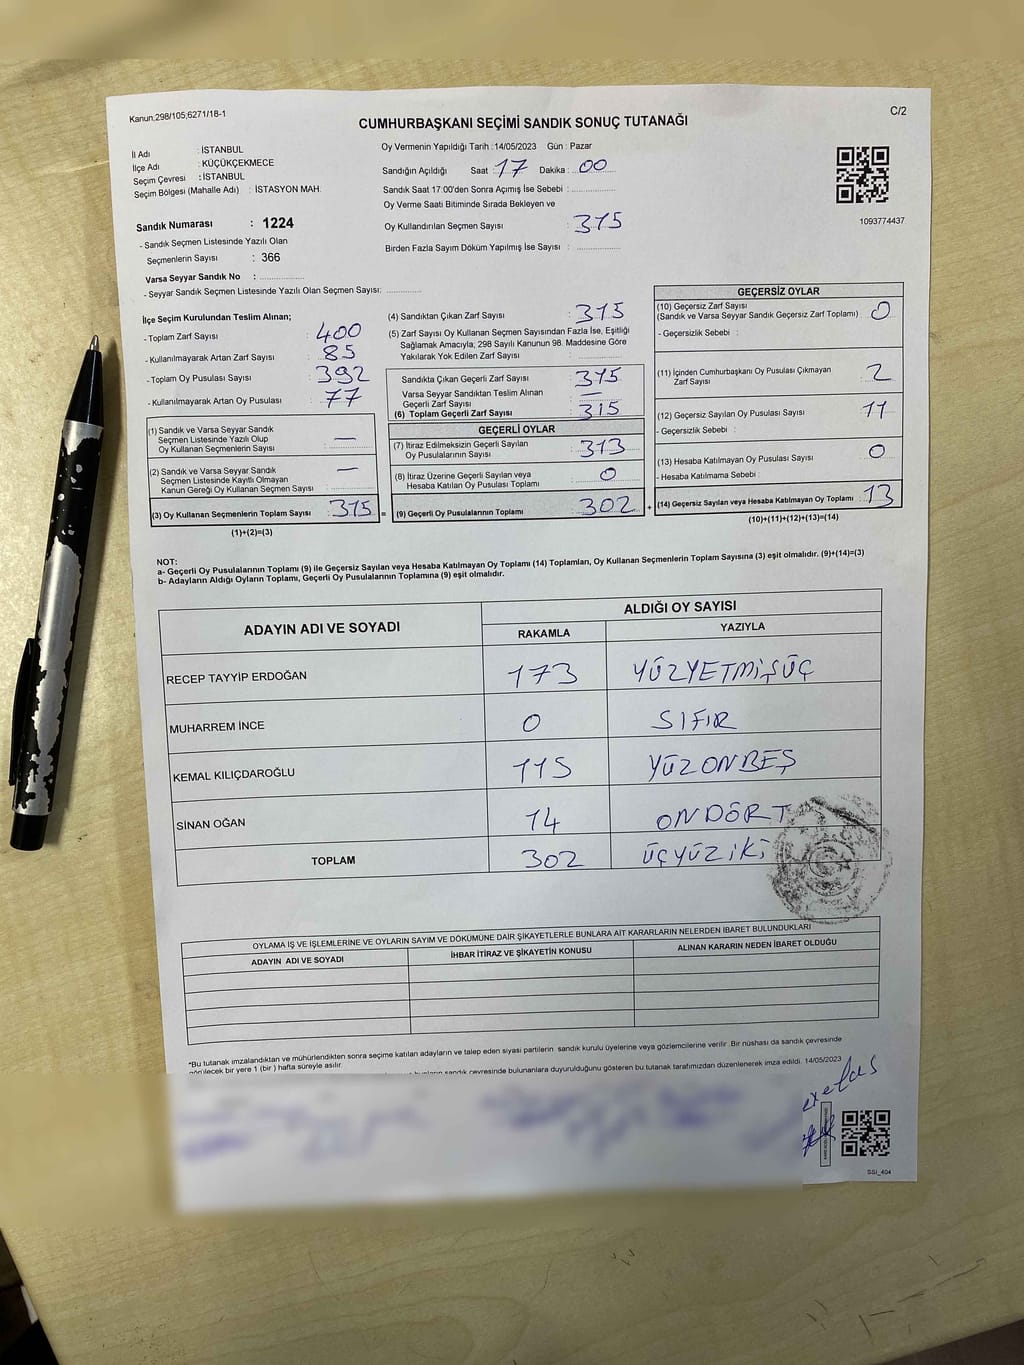 Kanun;298/105;6271/18-1
C/2
CUMHURBAŞKANI SEÇİMİ SANDIK SONUÇ TUTANAĞI
İl Adı : İSTANBUL
İlçe Adı : KÜÇÜKÇEKMECE
Seçim Çevresi : İSTANBUL
Seçim Bölgesi (Mahalle Adı) : İSTASYON MAH.
Sandık Numarası : 1224
- Sandık Seçmen Listesinde Yazılı Olan
Seçmenlerin Sayısı : 366
Varsa Seyyar Sandık No :
- Seyyar Sandık Seçmen Listesinde Yazılı Olan Seçmen Sayısı:
Oy Vermenin Yapıldığı Tarih :14/05/2023 Gün : Pazar
Sandığın Açıldığı Saat : 17 Dakika : 00
Sandık Saat 17:00'den Sonra Açımış İse Sebebi :
Oy Verme Saati Bitiminde Sırada Bekleyen ve
Oy Kullandırılan Seçmen Sayısı : 315
Birden Fazla Sayım Döküm Yapılmış İse Sayısı :
1093774437
İlçe Seçim Kurulundan Teslim Alınan;
- Toplam Zarf Sayısı : 400
- Kullanılmayarak Artan Zarf Sayısı : 85
- Toplam Oy Pusulası Sayısı : 392
- Kullanılmayarak Artan Oy Pusulası : 77
(1) Sandık ve Varsa Seyyar Sandık
Seçmen Listesinde Yazılı Olup
Oy Kullanan Seçmenlerin Sayısı : —
(2) Sandık ve Varsa Seyyar Sandık
Seçmen Listesinde Kayıtlı Olmayan
Kanun Gereği Oy Kullanan Seçmen Sayısı : —
(3) Oy Kullanan Seçmenlerin Toplam Sayısı : 315 =
(1)+(2)=(3)
(4) Sandıktan Çıkan Zarf Sayısı : 315
(5) Zarf Sayısı Oy Kullanan Seçmen Sayısından Fazla İse, Eşitliği
Sağlamak Amacıyla; 298 Sayılı Kanunun 98. Maddesine Göre
Yakılarak Yok Edilen Zarf Sayısı :
Sandıkta Çıkan Geçerli Zarf Sayısı : 315
Varsa Seyyar Sandıktan Teslim Alınan
Geçerli Zarf Sayısı : —
(6) Toplam Geçerli Zarf Sayısı : 315
GEÇERLİ OYLAR
(7) İtiraz Edilmeksizin Geçerli Sayılan
Oy Pusulalarının Sayısı : 313
(8) İtiraz Üzerine Geçerli Sayılan veya
Hesaba Katılan Oy Pusulası Toplamı : 0
(9) Geçerli Oy Pusulalarının Toplamı : 302 +
GEÇERSİZ OYLAR
(10) Geçersiz Zarf Sayısı
(Sandık ve Varsa Seyyar Sandık Geçersiz Zarf Toplamı) : 0
- Geçersizlik Sebebi :
(11) İçinden Cumhurbaşkanı Oy Pusulası Çıkmayan
Zarf Sayısı : 2
(12) Geçersiz Sayılan Oy Pusulası Sayısı : 11
- Geçersizlik Sebebi :
(13) Hesaba Katılmayan Oy Pusulası Sayısı : 0
- Hesaba Katılmama Sebebi :
(14) Geçersiz Sayılan veya Hesaba Katılmayan Oy Toplamı : 13
(10)+(11)+(12)+(13)=(14)
NOT:
a- Geçerli Oy Pusulalarının Toplamı (9) ile Geçersiz Sayılan veya Hesaba Katılmayan Oy Toplamı (14) Toplamları, Oy Kullanan Seçmenlerin Toplam Sayısına (3) eşit olmalıdır. (9)+(14)=(3)
b- Adayların Aldığı Oyların Toplamı, Geçerli Oy Pusulalarının Toplamına (9) eşit olmalıdır.
ADAYIN ADI VE SOYADI
ALDIĞI OY SAYISI
RAKAMLA YAZIYLA
RECEP TAYYİP ERDOĞAN 173 YÜZYETMİŞÜÇ
MUHARREM İNCE 0 SIFIR
KEMAL KILIÇDAROĞLU 115 YÜZONBEŞ
SİNAN OĞAN 14 ONDÖRT
TOPLAM 302 ÜÇYÜZİKİ
OYLAMA İŞ VE İŞLEMLERİNE VE OYLARIN SAYIM VE DÖKÜMÜNE DAİR ŞİKAYETLERLE BUNLARA AİT KARARLARIN NELERDEN İBARET BULUNDUKLARI
ADAYIN ADI VE SOYADI İHBAR İTİRAZ VE ŞİKAYETİN KONUSU ALINAN KARARIN NEDEN İBARET OLDUĞU
*Bu tutanak imzalandıktan ve mühürlendikten sonra seçime katılan adayların ve talep eden siyasi partilerin sandık kurulu üyelerine veya gözlemcilerine verilir .Bir nüshası da sandık çevresinde
görülecek bir yere 1 (bir ) hafta süreyle asılır.
sandık çevresinde bulunanlara duyurulduğunu gösteren bu tutanak tarafımızdan düzenlenerek imza edildi. 14/05/2023
SSİ_404